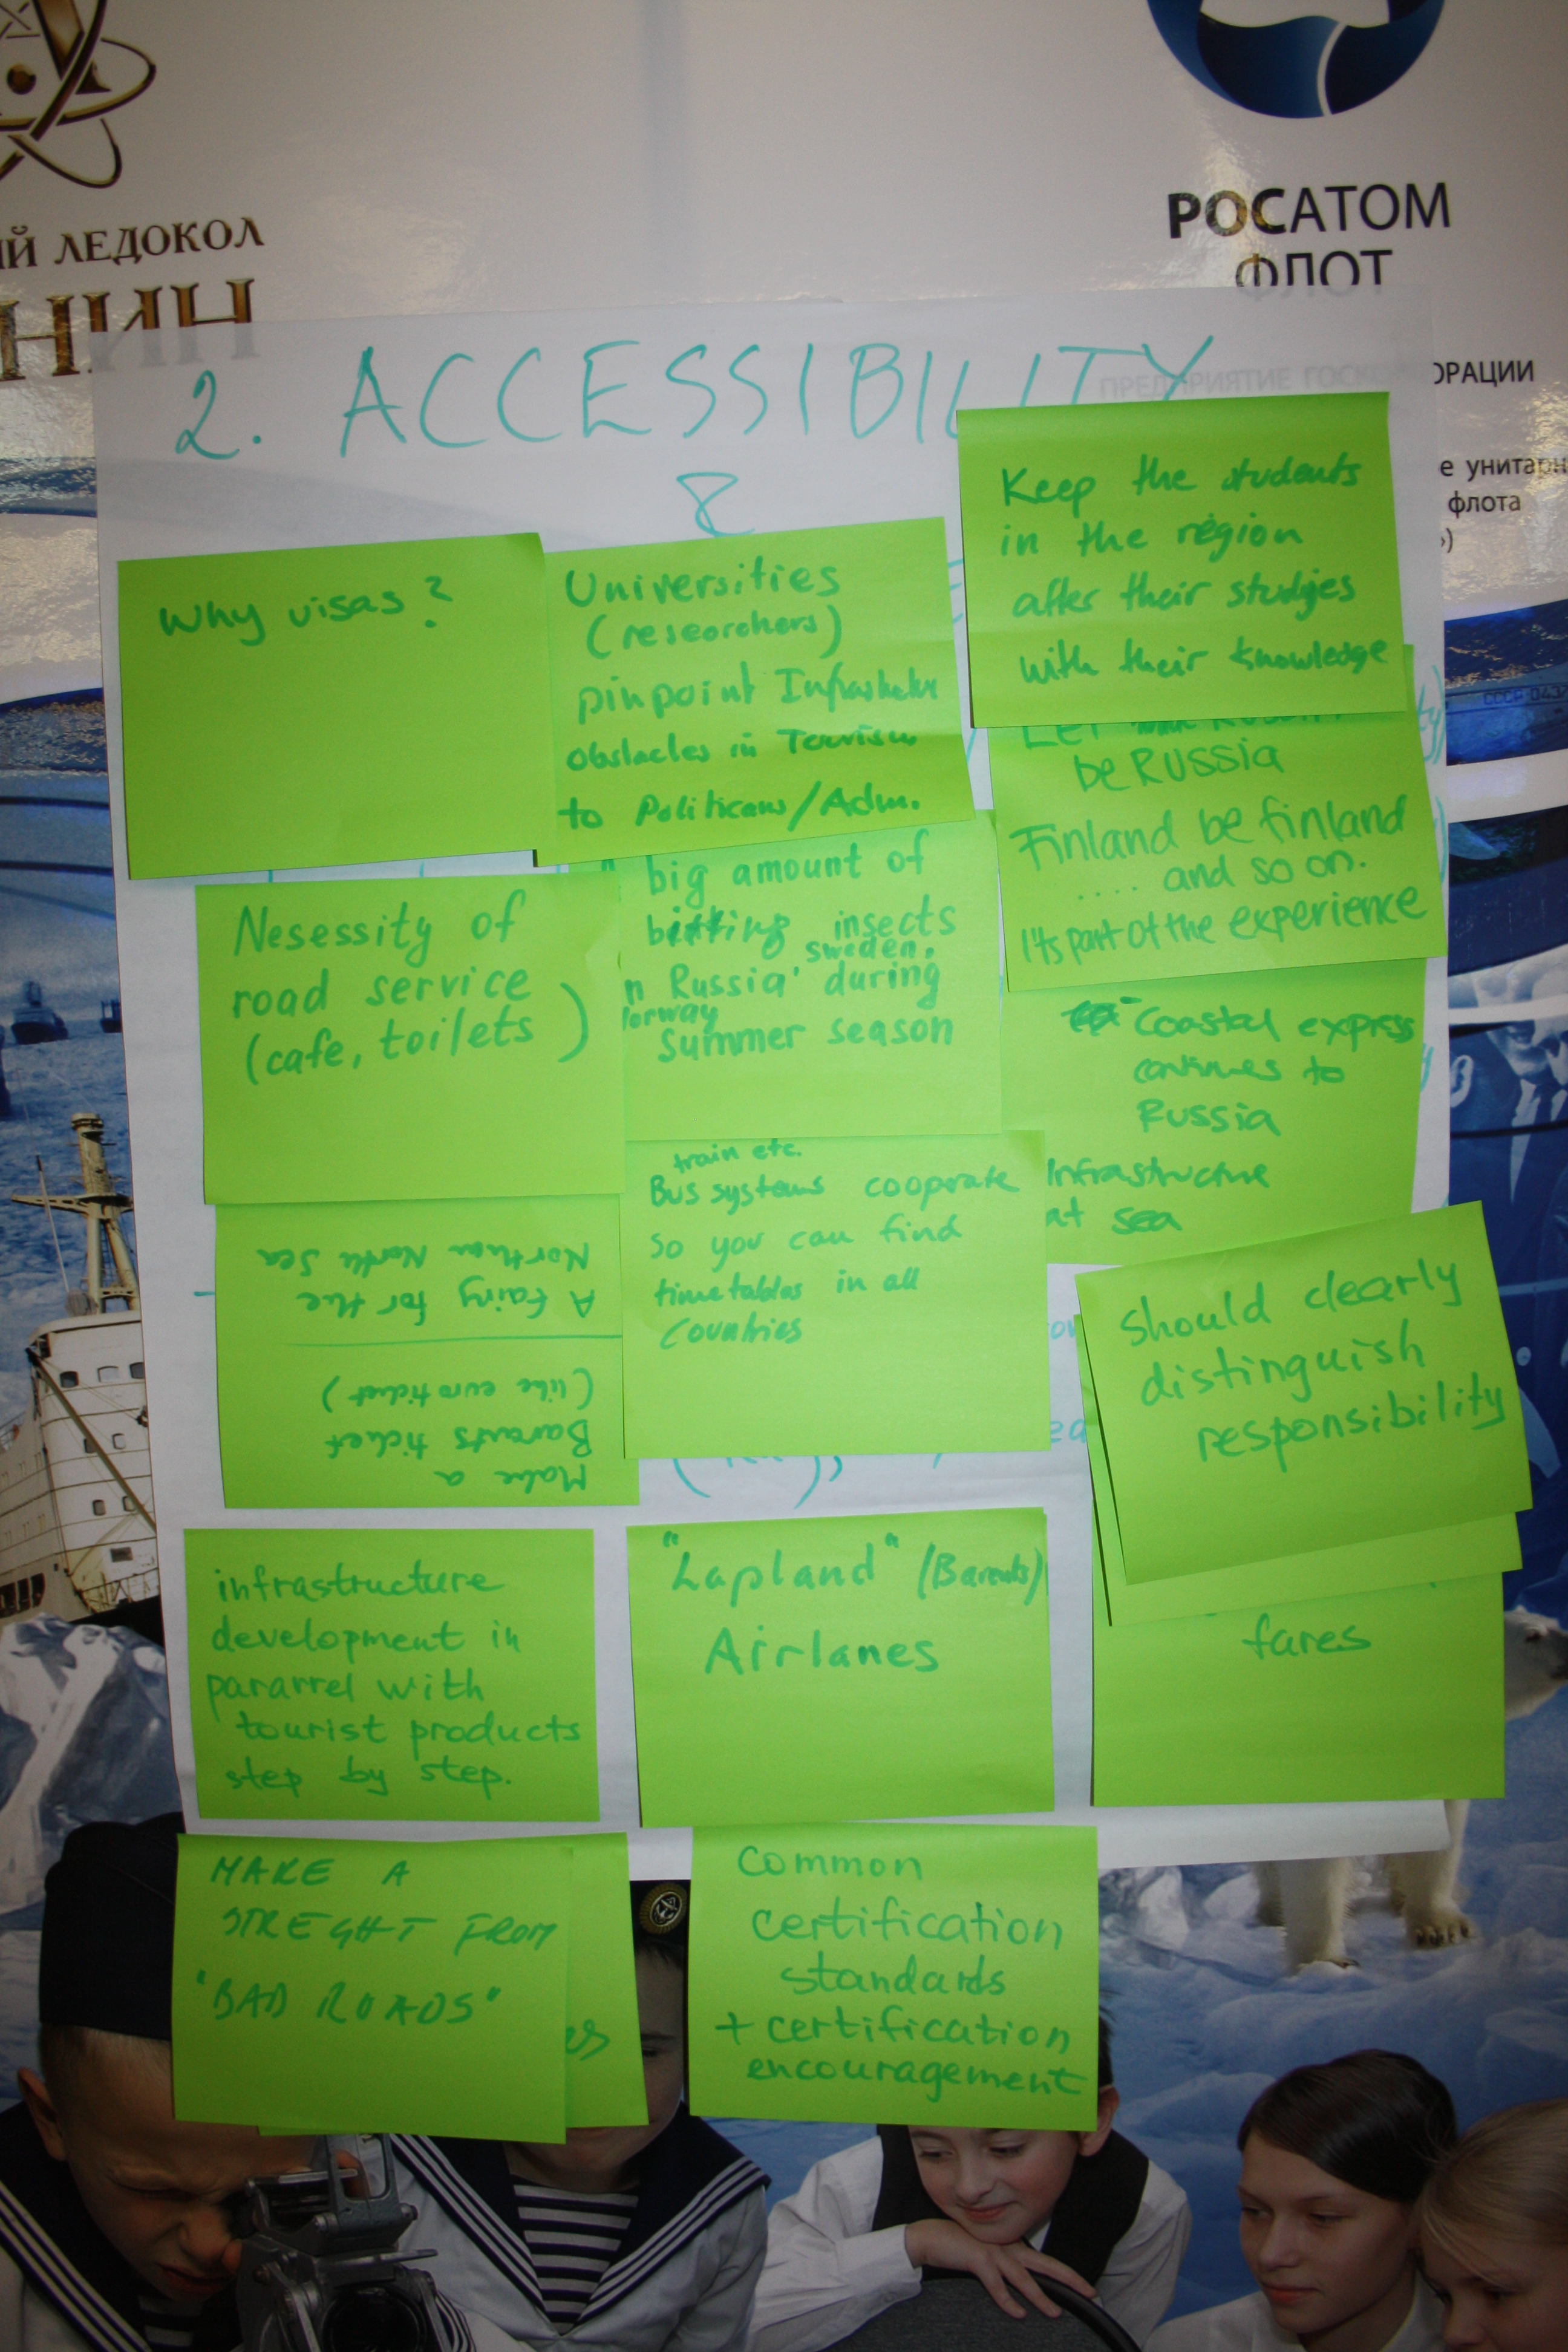 ИЙ ЛЕДОКОЛ
НИН
РОСАТОМ
ФЛОТ
ПРЕДПРИЯТИЕ ГОСК
ОРАЦИИ
е унитарн
флота
2. ACCESSIBILITY
&
Why visas?
Universities
(researchers)
pinpoint
Obstacles in Tourism
to Politicans/Adm.
Keep the students
in the region
after their studies
with their knowledge
Let Russia
be RUSSIA
Finland be finland
.... and so on.
It's part of the experience
Nesessity of
road service
(cafe, toilets)
big amount of
bitting insects
sweden,
n Russia' during
Norway
Summer season
Coastal express
continues to
Russia
Infrastructure
at sea
train etc.
Bus systems cooprate
so you can find
timetables in all
Countries
Make a
Barents ticket
(like euroticket)
A fairy for the
Northern North Sea
Should clearly
distinguish
responsibility
fares
infrastructure
development in
pararrel with
tourist products
step by step.
"Lapland" (Barents)
Airlanes
MAKE A
STREGHT FROM
"BAD ROADS"
es
Common
certification
standards
+ certification
encouragement